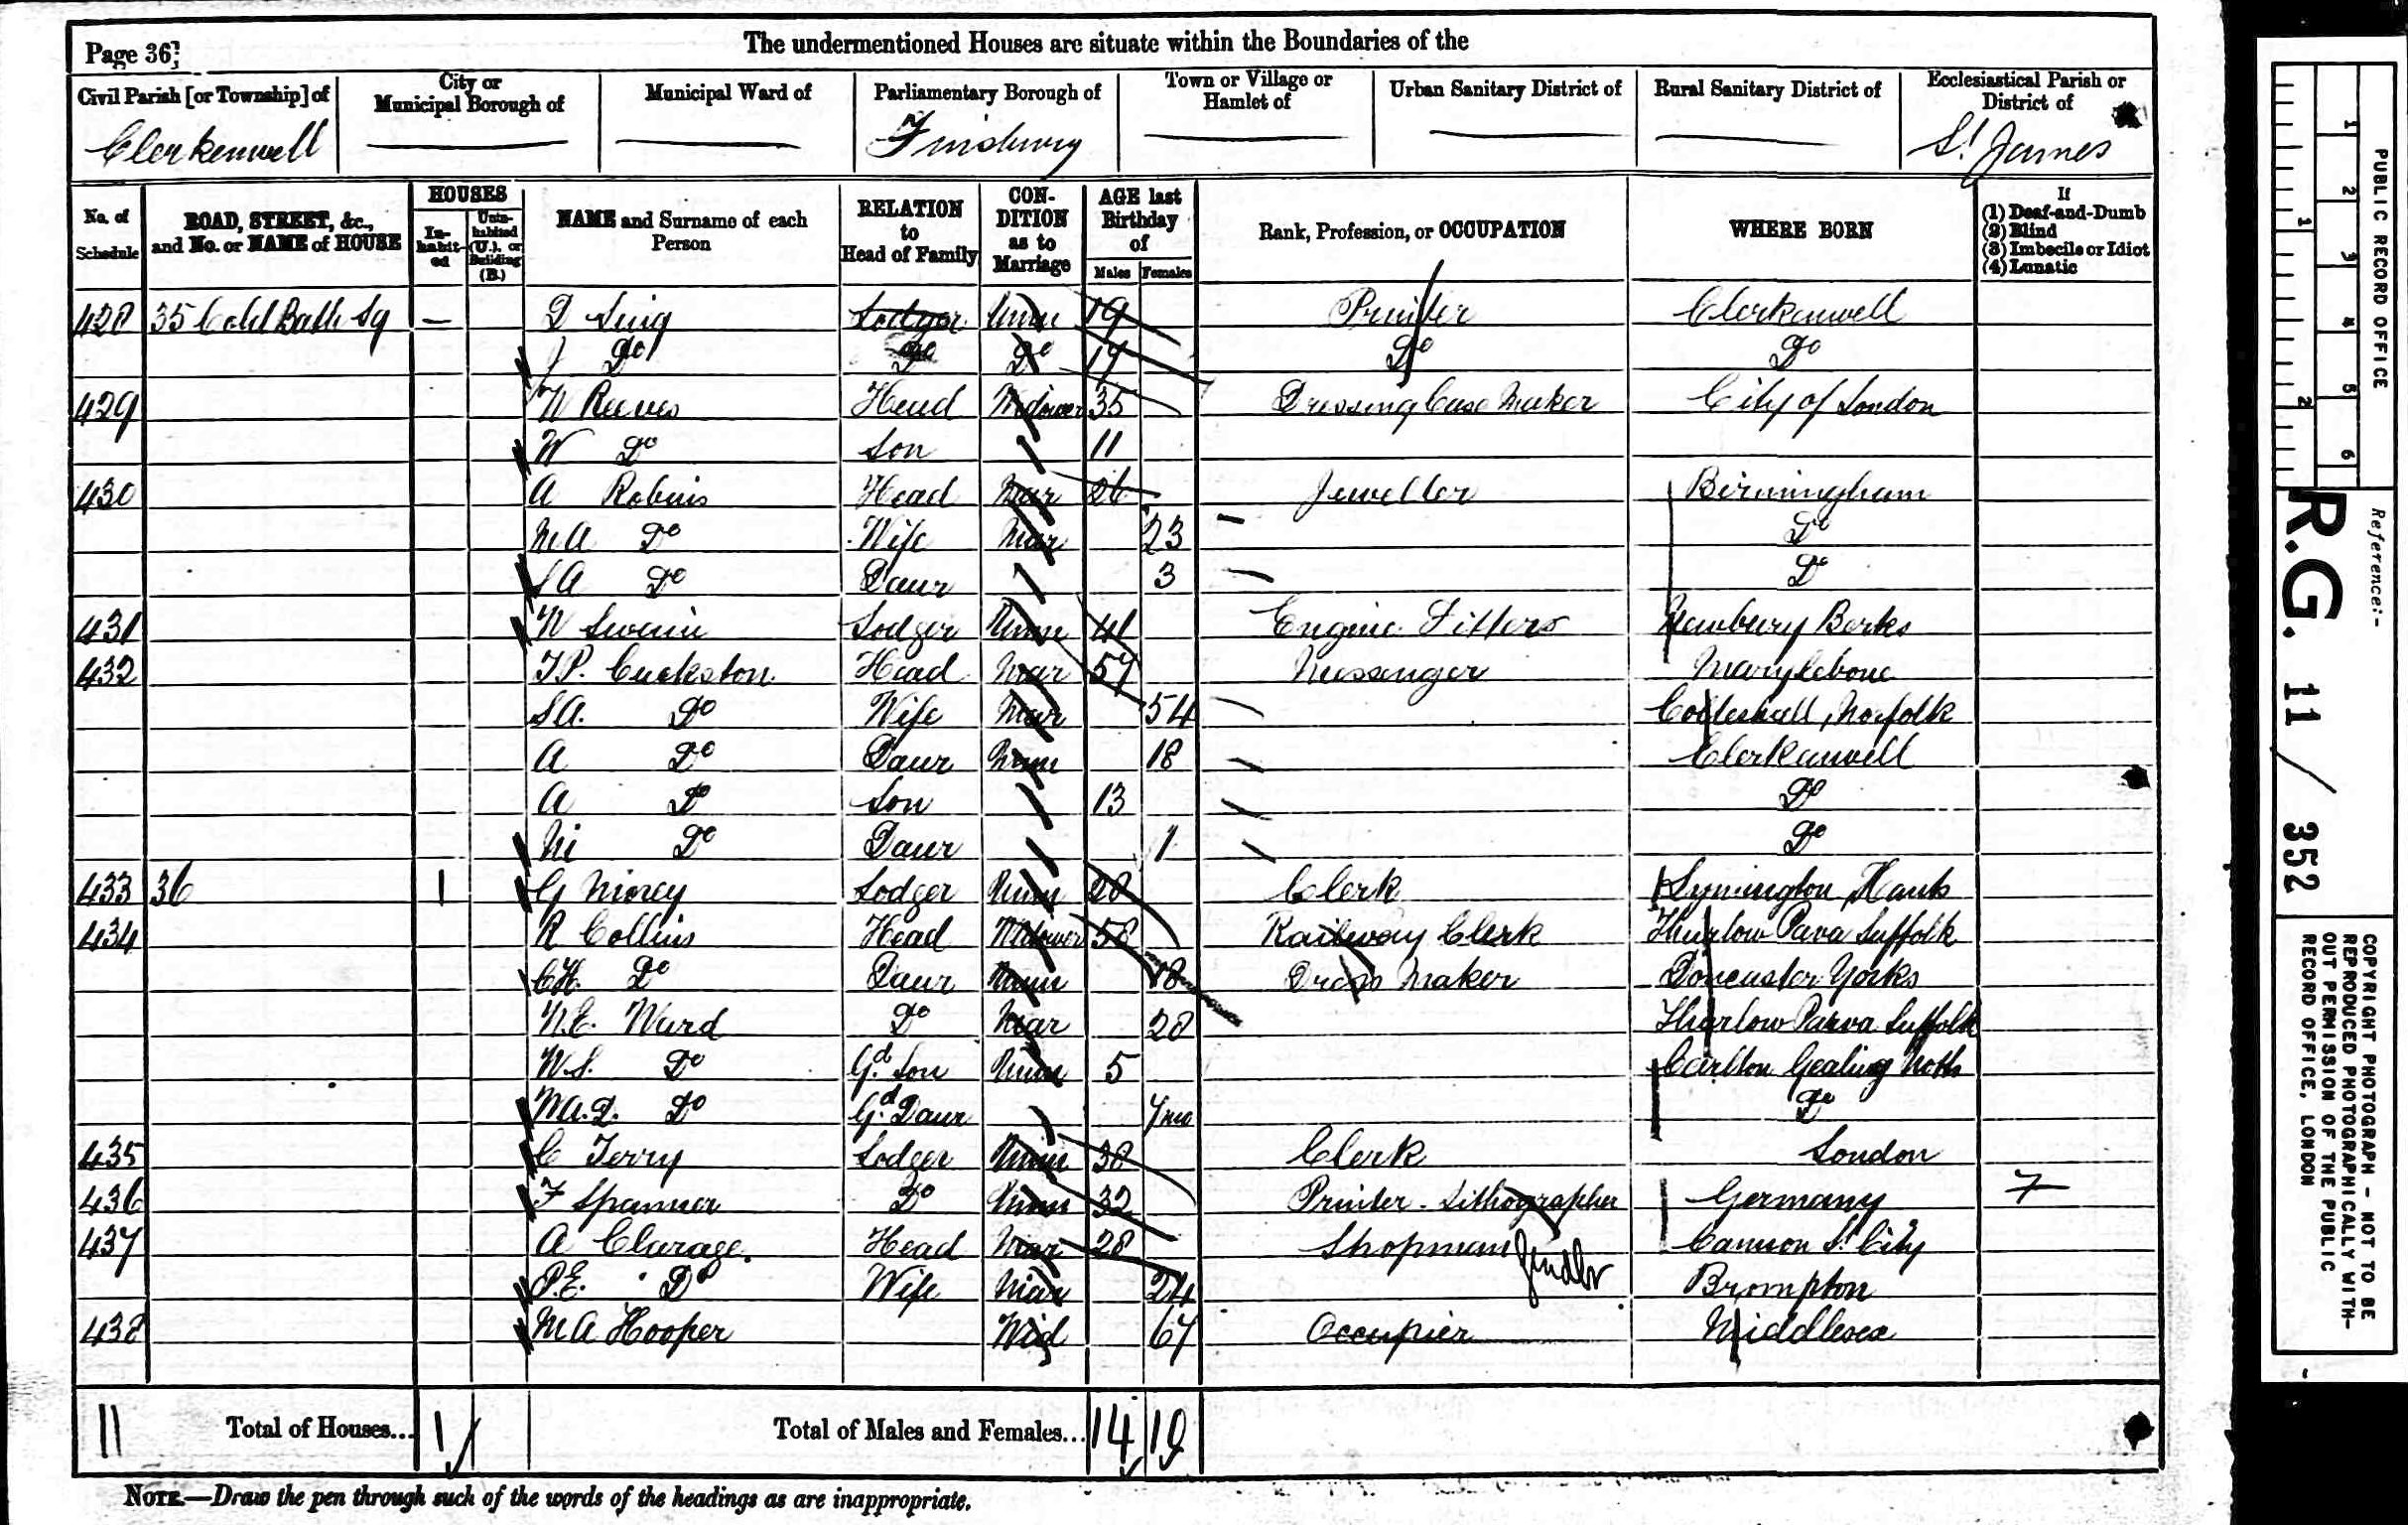 Page 36
The undermentioned Houses are situate within the Boundaries of the
Civil Parish [or Township] of
City or Municipal Borough of
Municipal Ward of
Parliamentary Borough of
Town or Village or Hamlet of
Urban Sanitary District of
Rural Sanitary District of
Ecclesiastical Parish or District of
Clerkenwell Finsbury St James
No. of Schedule
ROAD, STREET, &c., and No. or NAME of HOUSE
HOUSES
In-habit-ed
Unin-habited (U.), or Building (B.)
NAME and Surname of each Person
RELATION to Head of Family
CON-DITION as to Marriage
AGE last Birthday of
Males Females
Rank, Profession, or OCCUPATION
WHERE BORN
If
(1) Deaf-and-Dumb
(2) Blind
(3) Imbecile or Idiot
(4) Lunatic
428 35 Cold Bath Sq — D Sing Lodger Unm 19 Printer Clerkenwell
J Do Do Do 17 Do Do
429 W Reeves Head Widower 35 Dressing Case Maker City of London
W Do Son 11
430 A Robins Head Mar 26 Jeweller Birmingham
M A Do Wife Mar 23 Do
S A Do Daur 3 Do
431 W Swain Lodger Unm 41 Engine Fitters Newbury Berks
432 T.P. Cuckston Head Mar 57 Messenger Marylebone
S A. Do Wife Mar 54 Norfolk
A Do Daur Unm 18 Clerkenwell
A Do Son 13 Do
Do Daur 1 Do
433 36 1 G Morey Lodger Unm 28 Clerk Lymington Hants
434 R Collins Head Widower 58 Railway Clerk Thurlow Parva Suffolk
C.H. Do Daur Unm 18 Dress Maker Doncaster Yorks
E. Ward Do Mar 28 Thurlow Parva Suffolk
W.S. Do Gd. Son Unm 5 Carlton Gealing Notts
M A. D. Do Gd. Daur 7 mo Do
435 C Terry Lodger Unm 38 Clerk London
436 F Spanner Do Unm 32 Printer - Lithographer Germany 7
437 A Clarage. Head Mar 28 Shopman Cannon St City
P.E. Do Wife Mar 24 Brompton
438 M A Hooper Wid 67 Occupier Middlesex
11 Total of Houses... 1 Total of Males and Females... 14
NOTE.—Draw the pen through such of the words of the headings as are inappropriate.
PUBLIC RECORD OFFICE
1 2 3 4 5 6
1 2
Reference:-
R.G. 11 / 352
COPYRIGHT PHOTOGRAPH - NOT TO BE
REPRODUCED PHOTOGRAPHICALLY WITH-
OUT PERMISSION OF THE PUBLIC
RECORD OFFICE, LONDON